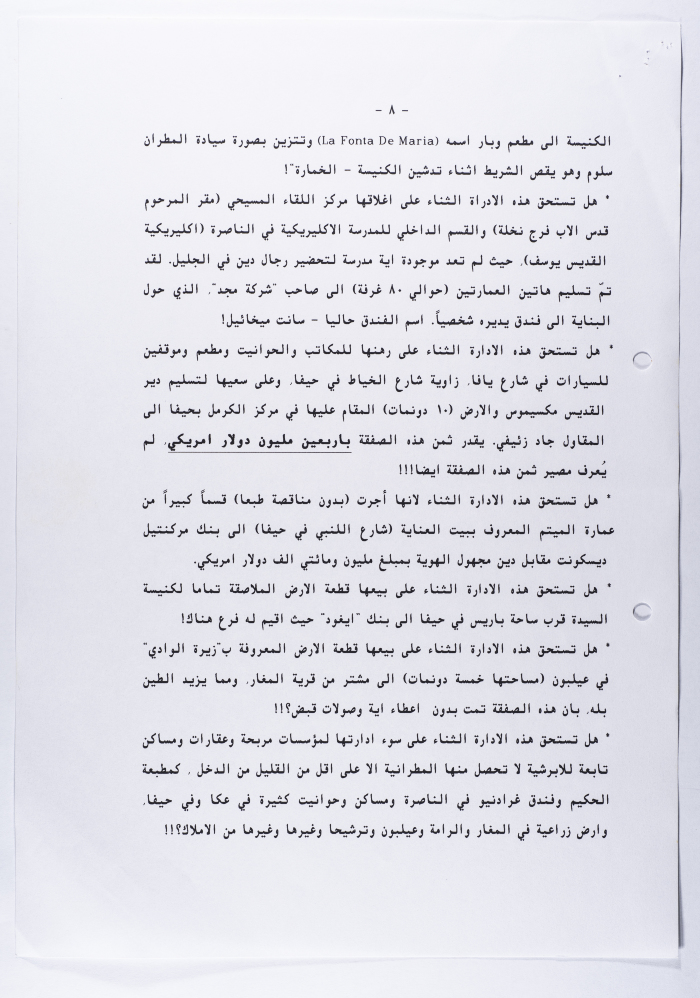 - ٨ -
الكنيسة الى مطعم وبار اسمه (La Fonta De Maria) وتتزين بصورة سيادة المطران
سلوم وهو يقص الشريط اثناء تدشين الكنيسة - الخمارة"!
* هل تستحق هذه الادراة الثناء على اغلاقها مركز اللقاء المسيحي (مقر المرحوم
قدس الاب فرج نخلة) والقسم الداخلي للمدرسة الاكليريكية في الناصرة (اكليريكية
القديس يوسف)، حيث لم تعد موجودة اية مدرسة لتحضير رجال دين في الجليل. لقد
تمّ تسليم هاتين العمارتين (حوالي ٨٠ غرفة) الى صاحب "شركة مجد"، الذي حول
البناية الى فندق يديره شخصياً. اسم الفندق حاليا - سانت ميخائيل!
* هل تستحق هذه الادارة الثناء على رهنها للمكاتب والحوانيت ومطعم وموقفين
للسيارات في شارع يافا، زاوية شارع الخياط في حيفا، وعلى سعيها لتسليم دير
القديس مكسيموس والارض (١٠ دونمات) المقام عليها في مركز الكرمل بحيفا الى
المقاول جاد زئيفي. يقدر ثمن هذه الصفقة باربعين مليون دولار امريكي، لم
يُعرف مصير ثمن هذه الصفقة ايضا!!!
* هل تستحق هذه الادارة الثناء لانها أجرت (بدون مناقصة طبعا) قسماً كبيراً من
عمارة الميتم المعروف ببيت العناية (شارع اللنبي في حيفا) الى بنك مركنتيل
ديسكونت مقابل دين مجهول الهوية بمبلغ مليون ومائتي الف دولار امريكي.
* هل تستحق هذه الادارة الثناء على بيعها قطعة الارض الملاصقة تماما لكنيسة
السيدة قرب ساحة باريس في حيفا الى بنك "ايغود" حيث اقيم له فرع هناك!
* هل تستحق هذه الادارة الثناء على بيعها قطعة الارض المعروفة ب"زيرة الوادي"
في عيلبون (مساحتها خمسة دونمات) الى مشتر من قرية المغار، ومما يزيد الطين
بله، بان هذه الصفقة تمت بدون اعطاء اية وصولات قبض؟!!
* هل تستحق هذه الادارة الثناء على سوء ادارتها لمؤسسات مربحة وعقارات ومساكن
تابعة للابرشية لا تحصل منها المطرانية الا على اقل من القليل من الدخل ، كمطبعة
الحكيم وفندق غرادنيو في الناصرة ومساكن وحوانيت كثيرة في عكا وفي حيفا،
وارض زراعية في المغار والرامة وعيلبون وترشيحا وغيرها وغيرها من الاملاك؟!!